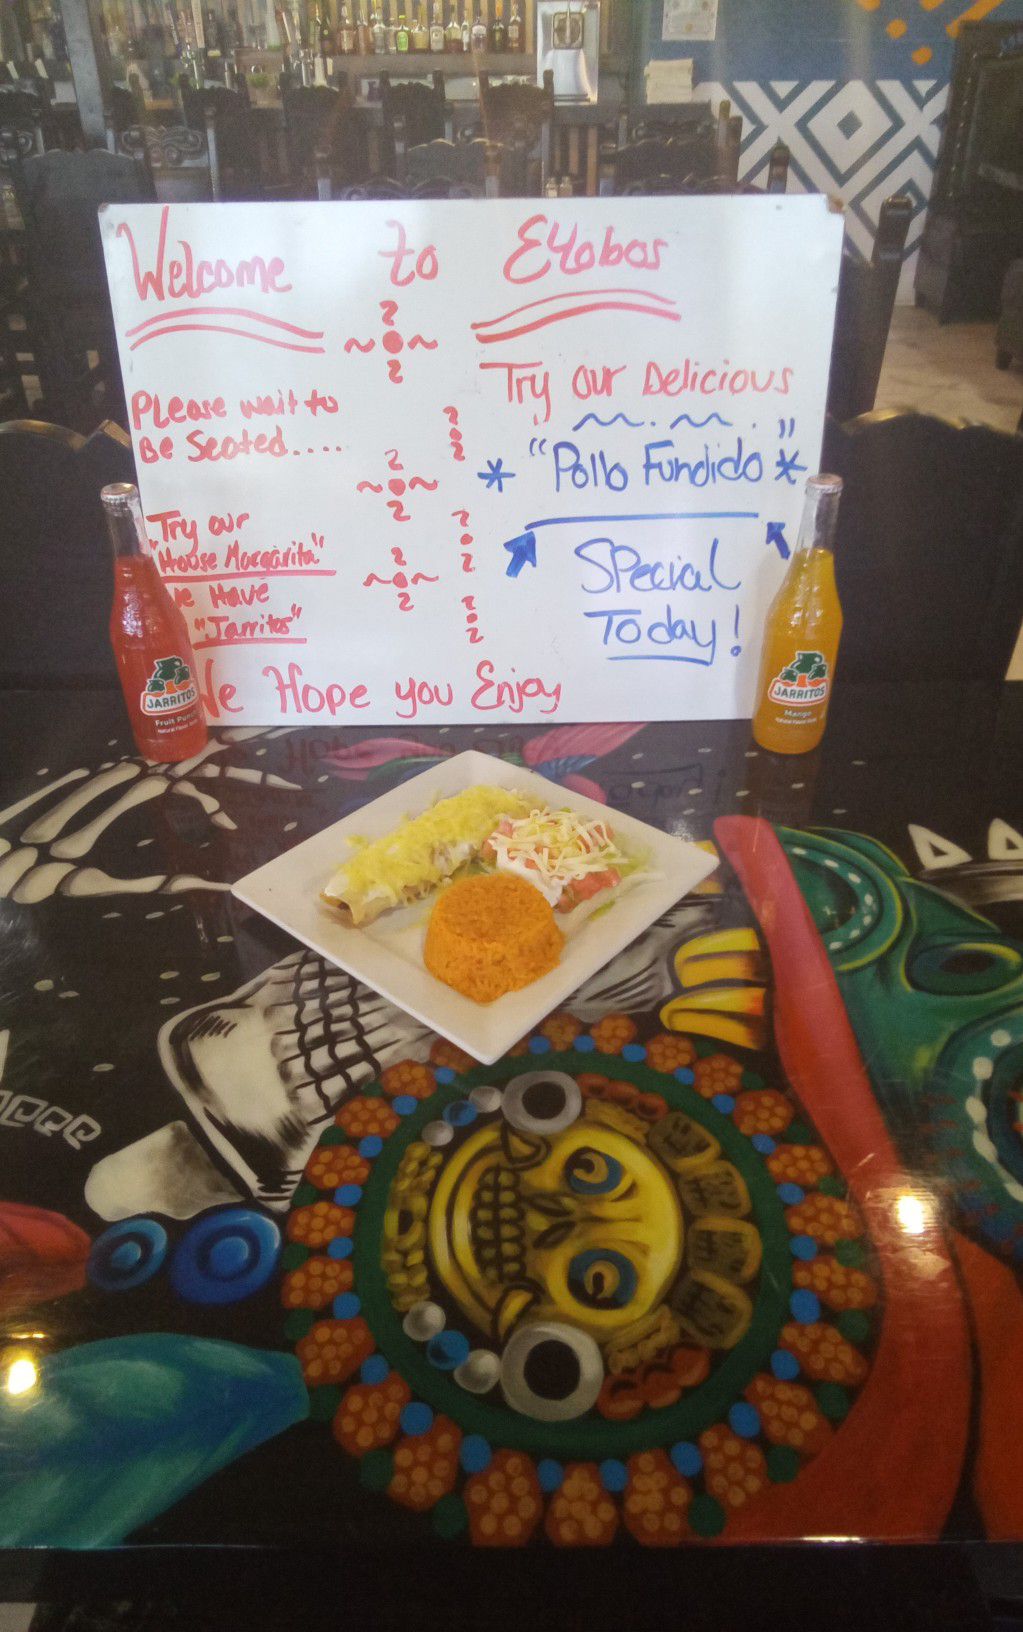 Welcome to E4obos
Please wait to
Be Seated.....
"Try our
House Margarita"
We Have
"Jarritos"
We Hope you Enjoy
Try our Delicious
* "Pollo Fundido" *
Special
Today!
JARRITOS
Fruit Punch
JARRITOS
Mango